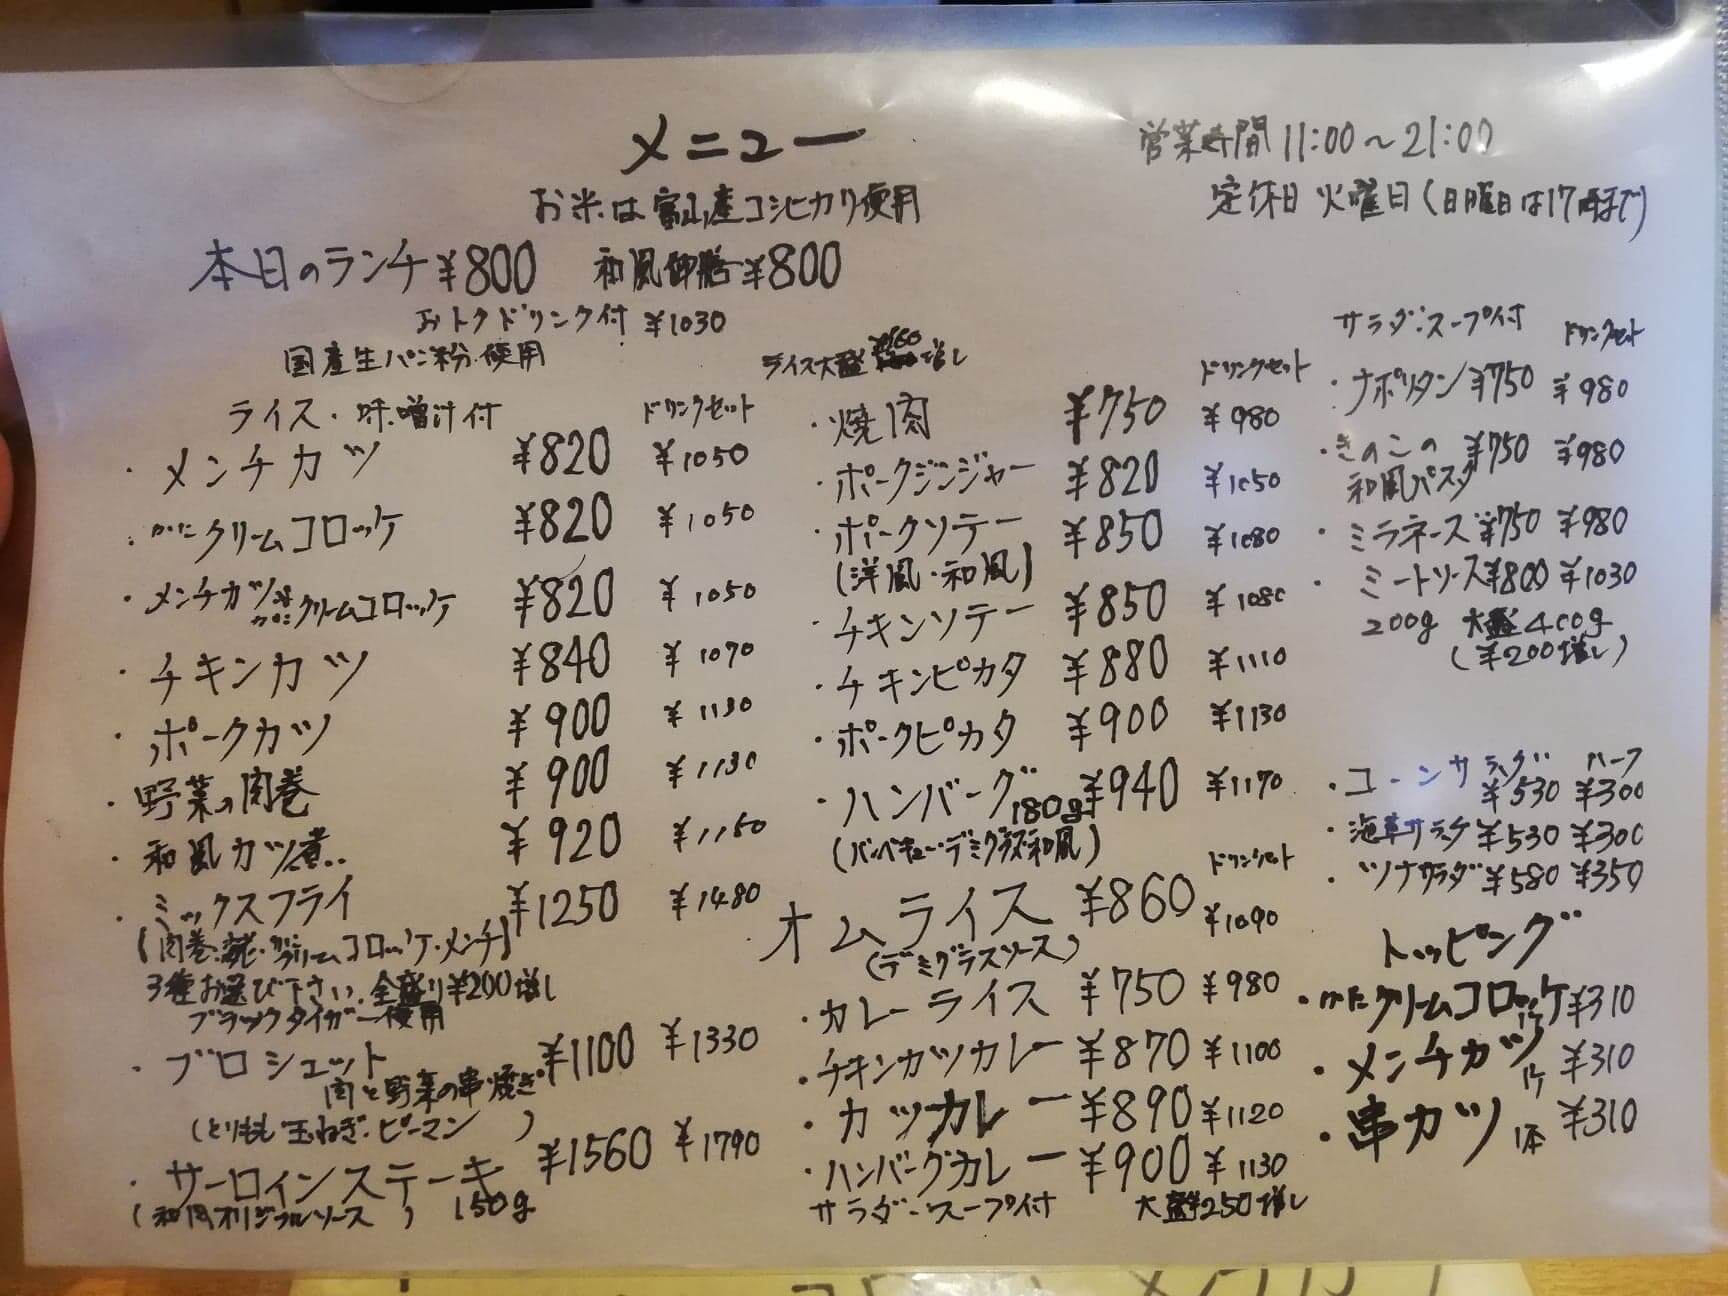 メニュー
お米は富山産コシヒカリ使用
営業時間 11:00～21:00
定休日 火曜日(日曜日は17時まで)
本日のランチ¥800 和風御膳¥800
おトクドリンク付 ¥1030
国産生パン粉使用
ライス・味噌汁付 ドリンクセット
・メンチカツ ¥820 ¥1050
・かにクリームコロッケ ¥820 ¥1050
・メンチカツ かにクリームコロッケ ¥820 ¥1050
・チキンカツ ¥840 ¥1070
・ポークカツ ¥900 ¥1130
・野菜の肉巻 ¥900 ¥1130
・和風カツ煮 ¥920 ¥1150
・ミックスフライ ¥1250 ¥1480
(肉巻・海老・かにクリームコロッケ・メンチ)
3種お選び下さい. 全盛り¥200増し
ブラックタイガー使用
・ブロシェット ¥1100 ¥1330
肉と野菜の串焼き
(とりもも 玉ねぎ・ピーマン)
・サーロインステーキ ¥1560 ¥1790
(和風オリジナルソース) 150g
ライス大盛 増し
ドリンクセット
・焼肉 ¥750 ¥980
・ポークジンジャー ¥820 ¥1050
・ポークソテー ¥850 ¥1080
(洋風・和風)
・チキンソテー ¥850 ¥1080
・チキンピカタ ¥880 ¥1110
・ポークピカタ ¥900 ¥1130
・ハンバーグ180g ¥940 ¥1170
(バーベキュー・デミグラス・和風)
ドリンクセット
オムライス ¥860 ¥1090
(デミグラスソース)
・カレーライス ¥750 ¥980
・チキンカツカレー ¥870 ¥1100
・カツカレー ¥890 ¥1120
・ハンバーグカレー ¥900 ¥1130
サラダ・スープ付 大盛¥250増し
サラダ・スープ付 ドリンクセット
・ナポリタン ¥750 ¥980
・きのこの ¥750 ¥980
和風パスタ
・ミラネーズ ¥750 ¥980
・ミートソース ¥800 ¥1030
200g 大盛400g
(¥200増し)
ハーフ
・コーンサラダ ¥530 ¥300
・海草サラダ ¥530 ¥300
・ツナサラダ ¥580 ¥350
トッピング
・かにクリームコロッケ 1ケ ¥310
・メンチカツ 1ケ ¥310
・串カツ 1本 ¥310